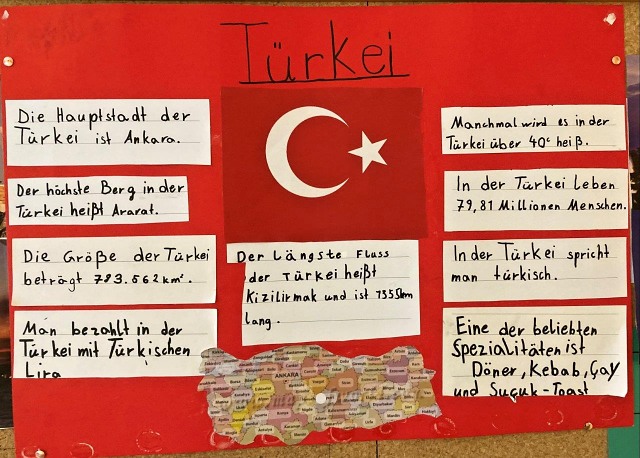 Türkei
Die Hauptstadt der
Türkei ist Ankara.
Der höchste Berg in der
Türkei heißt Ararat.
Die Größe der Türkei
beträgt 783.562 km².
Man bezahlt in der
Türkei mit Türkischen
Lira
Der Längste Fluss
der Türkei heißt
Kizilirmak und ist 1355km
lang.
ANKARA
Manchmal wird es in der
Türkei über 40° heiß.
In der Türkei leben
79,81 Millionen Menschen.
In der Türkei spricht
man türkisch.
Eine der beliebten
Spezialitäten ist
Döner, Kebab, Çay
und Suçuk-Toast